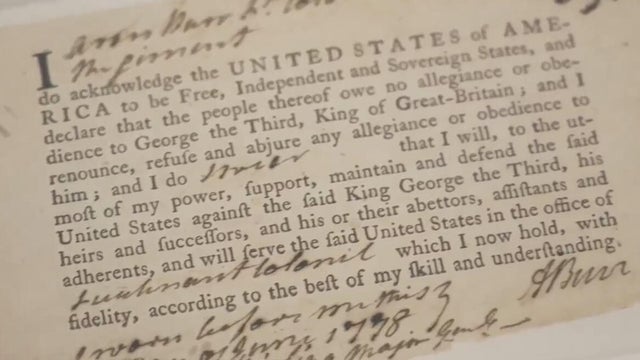 I Aaron Burr Lt. Col.
Regiment
do acknowledge the UNITED STATES of AME-
RICA to be Free, Independent and Sovereign States, and
declare that the people thereof owe no allegiance or obe-
dience to George the Third, King of Great-Britain; and I
renounce, refuſe and abjure any allegiance or obedience to
him; and I do swear that I will, to the ut-
moſt of my power, ſupport, maintain and defend the ſaid
United States againſt the ſaid King George the Third, his
heirs and ſucceſſors, and his or their abettors, aſſiſtants and
adherents, and will ſerve the ſaid United States in the office of
Lieutenant Colonel which I now hold, with
fidelity, according to the beſt of my ſkill and underſtanding.
Sworn before me this ABurr
June 1778
Major Genl